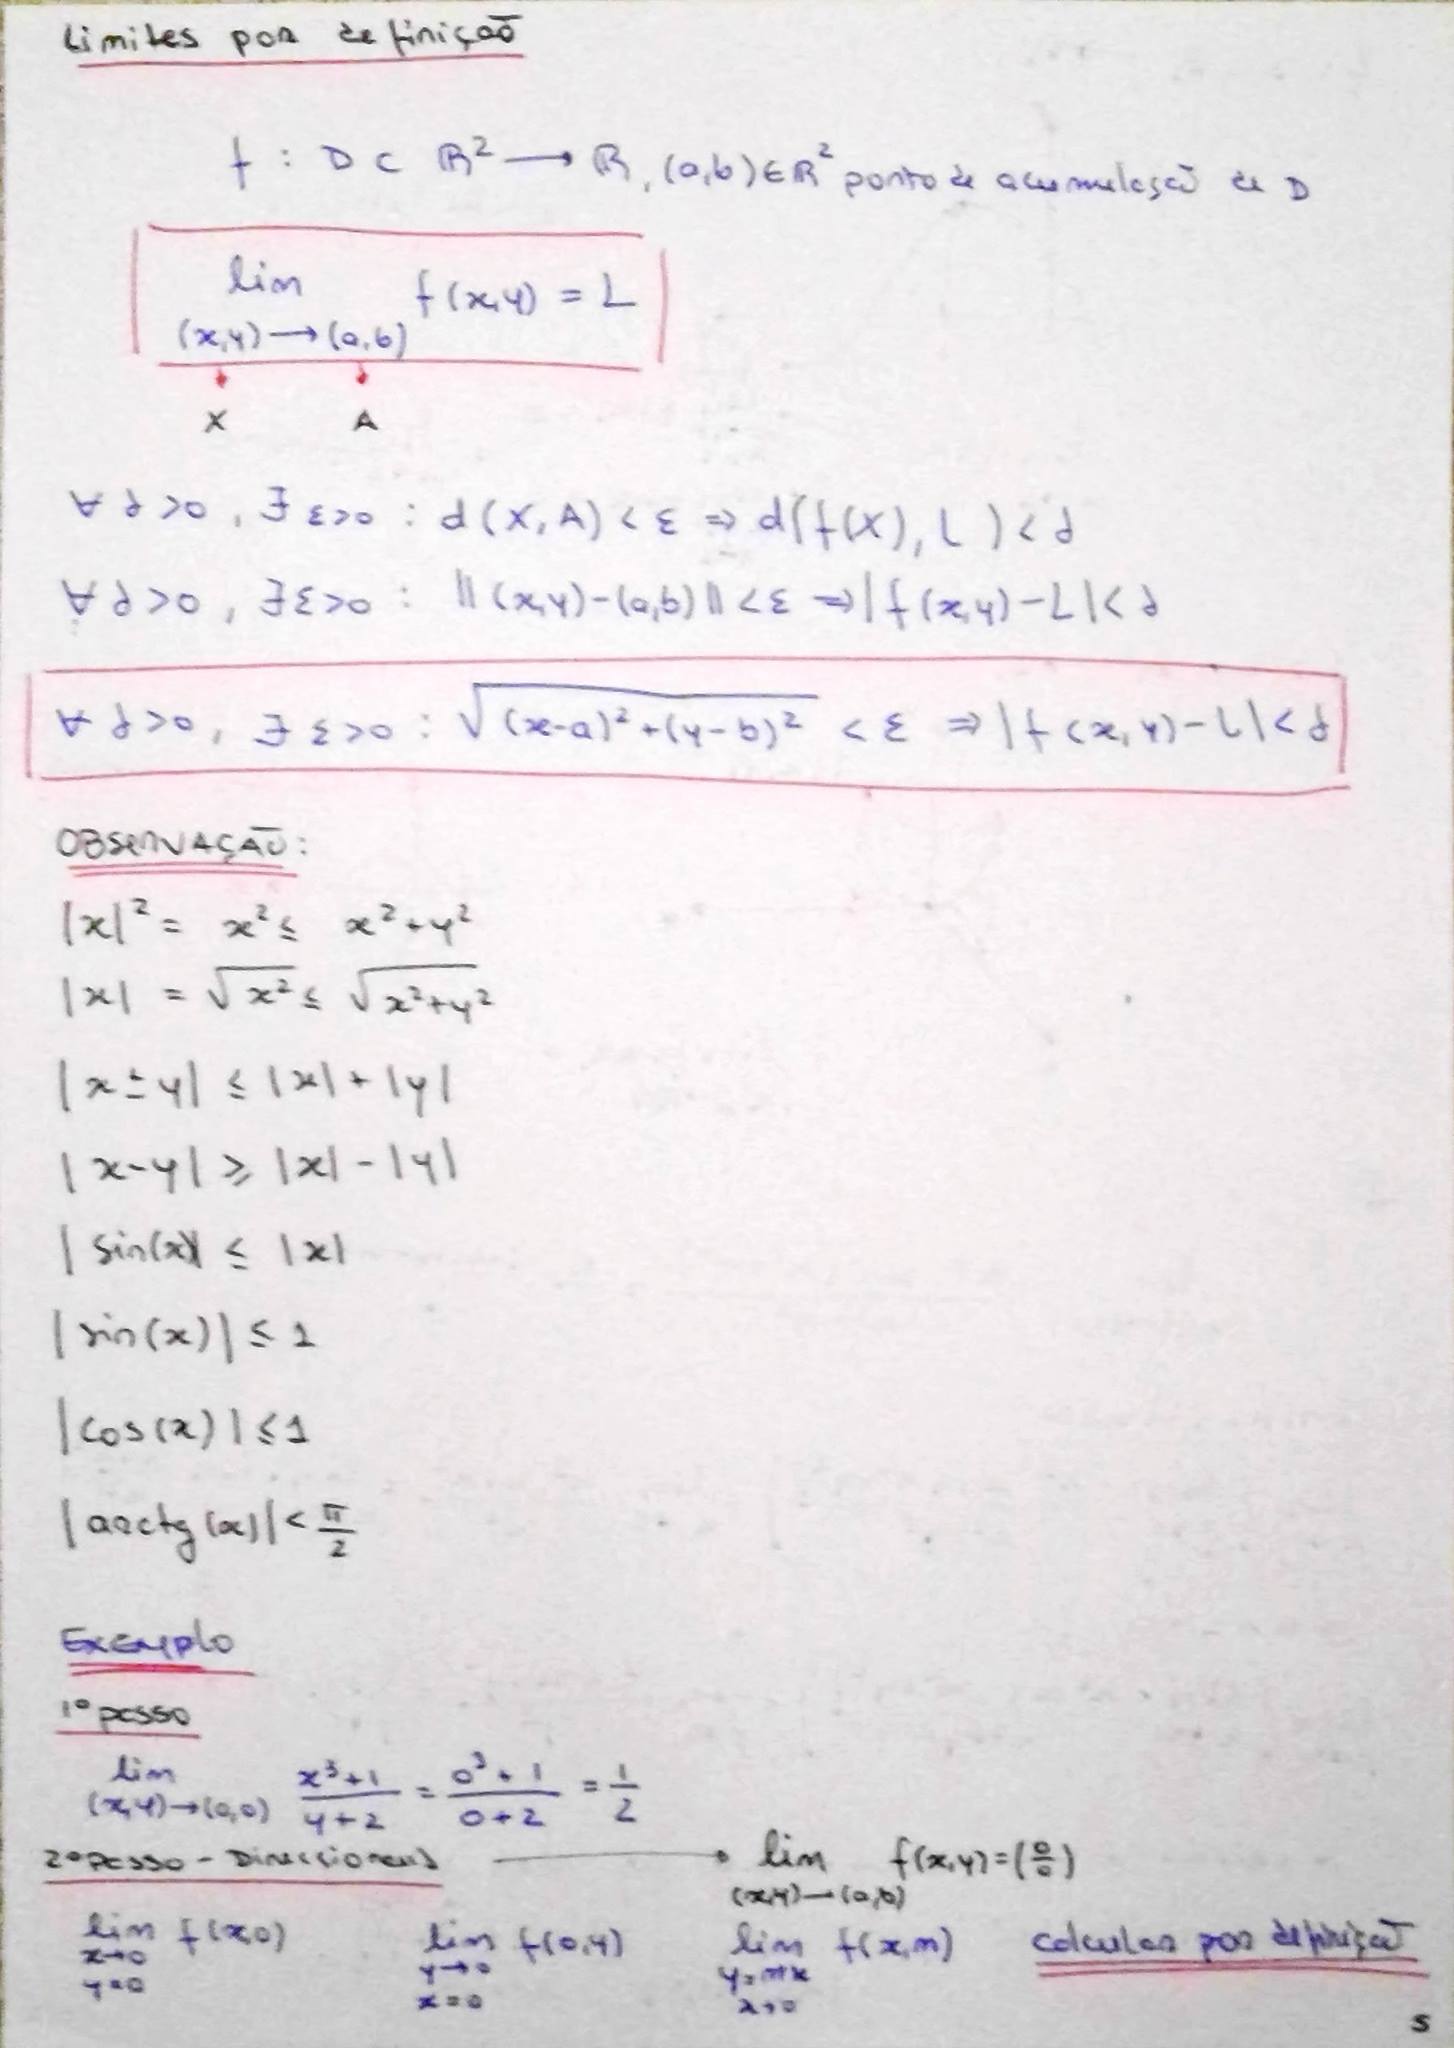 Limites por definição
f : D ⊂ ℝ² → ℝ, (a,b) ∈ ℝ² ponto de acumulação de D
lim f(x,y) = L
(x,y) → (a,b)
X A
∀ δ>0, ∃ ε>0 : d(X,A) < ε ⇒ d(f(X), L) < δ
∀ δ>0, ∃ ε>0 : ||(x,y)-(a,b)|| < ε ⇒ |f(x,y)-L| < δ
∀ δ>0, ∃ ε>0 : √((x-a)²+(y-b)²) < ε ⇒ |f(x,y)-L| < δ
OBSERVAÇÃO:
|x|² = x² ≤ x²+y²
|x| = √x² ≤ √(x²+y²)
|x±y| ≤ |x|+|y|
|x-y| ≥ |x|-|y|
|sin(x)| ≤ |x|
|sin(x)| ≤ 1
|cos(x)| ≤ 1
|arctg(x)| < π/2
Exemplo
1º passo
lim (x,y)→(0,0) (x³+1)/(y+2) = (0³+1)/(0+2) = 1/2
2º passo - Direccionais → lim f(x,y) = (0/0)
(x,y)→(a,b)
lim f(x,0) lim f(0,y) lim f(x,m) calcular por definição
x→0 y→0 y=mx
y=0 x=0 x→0
5